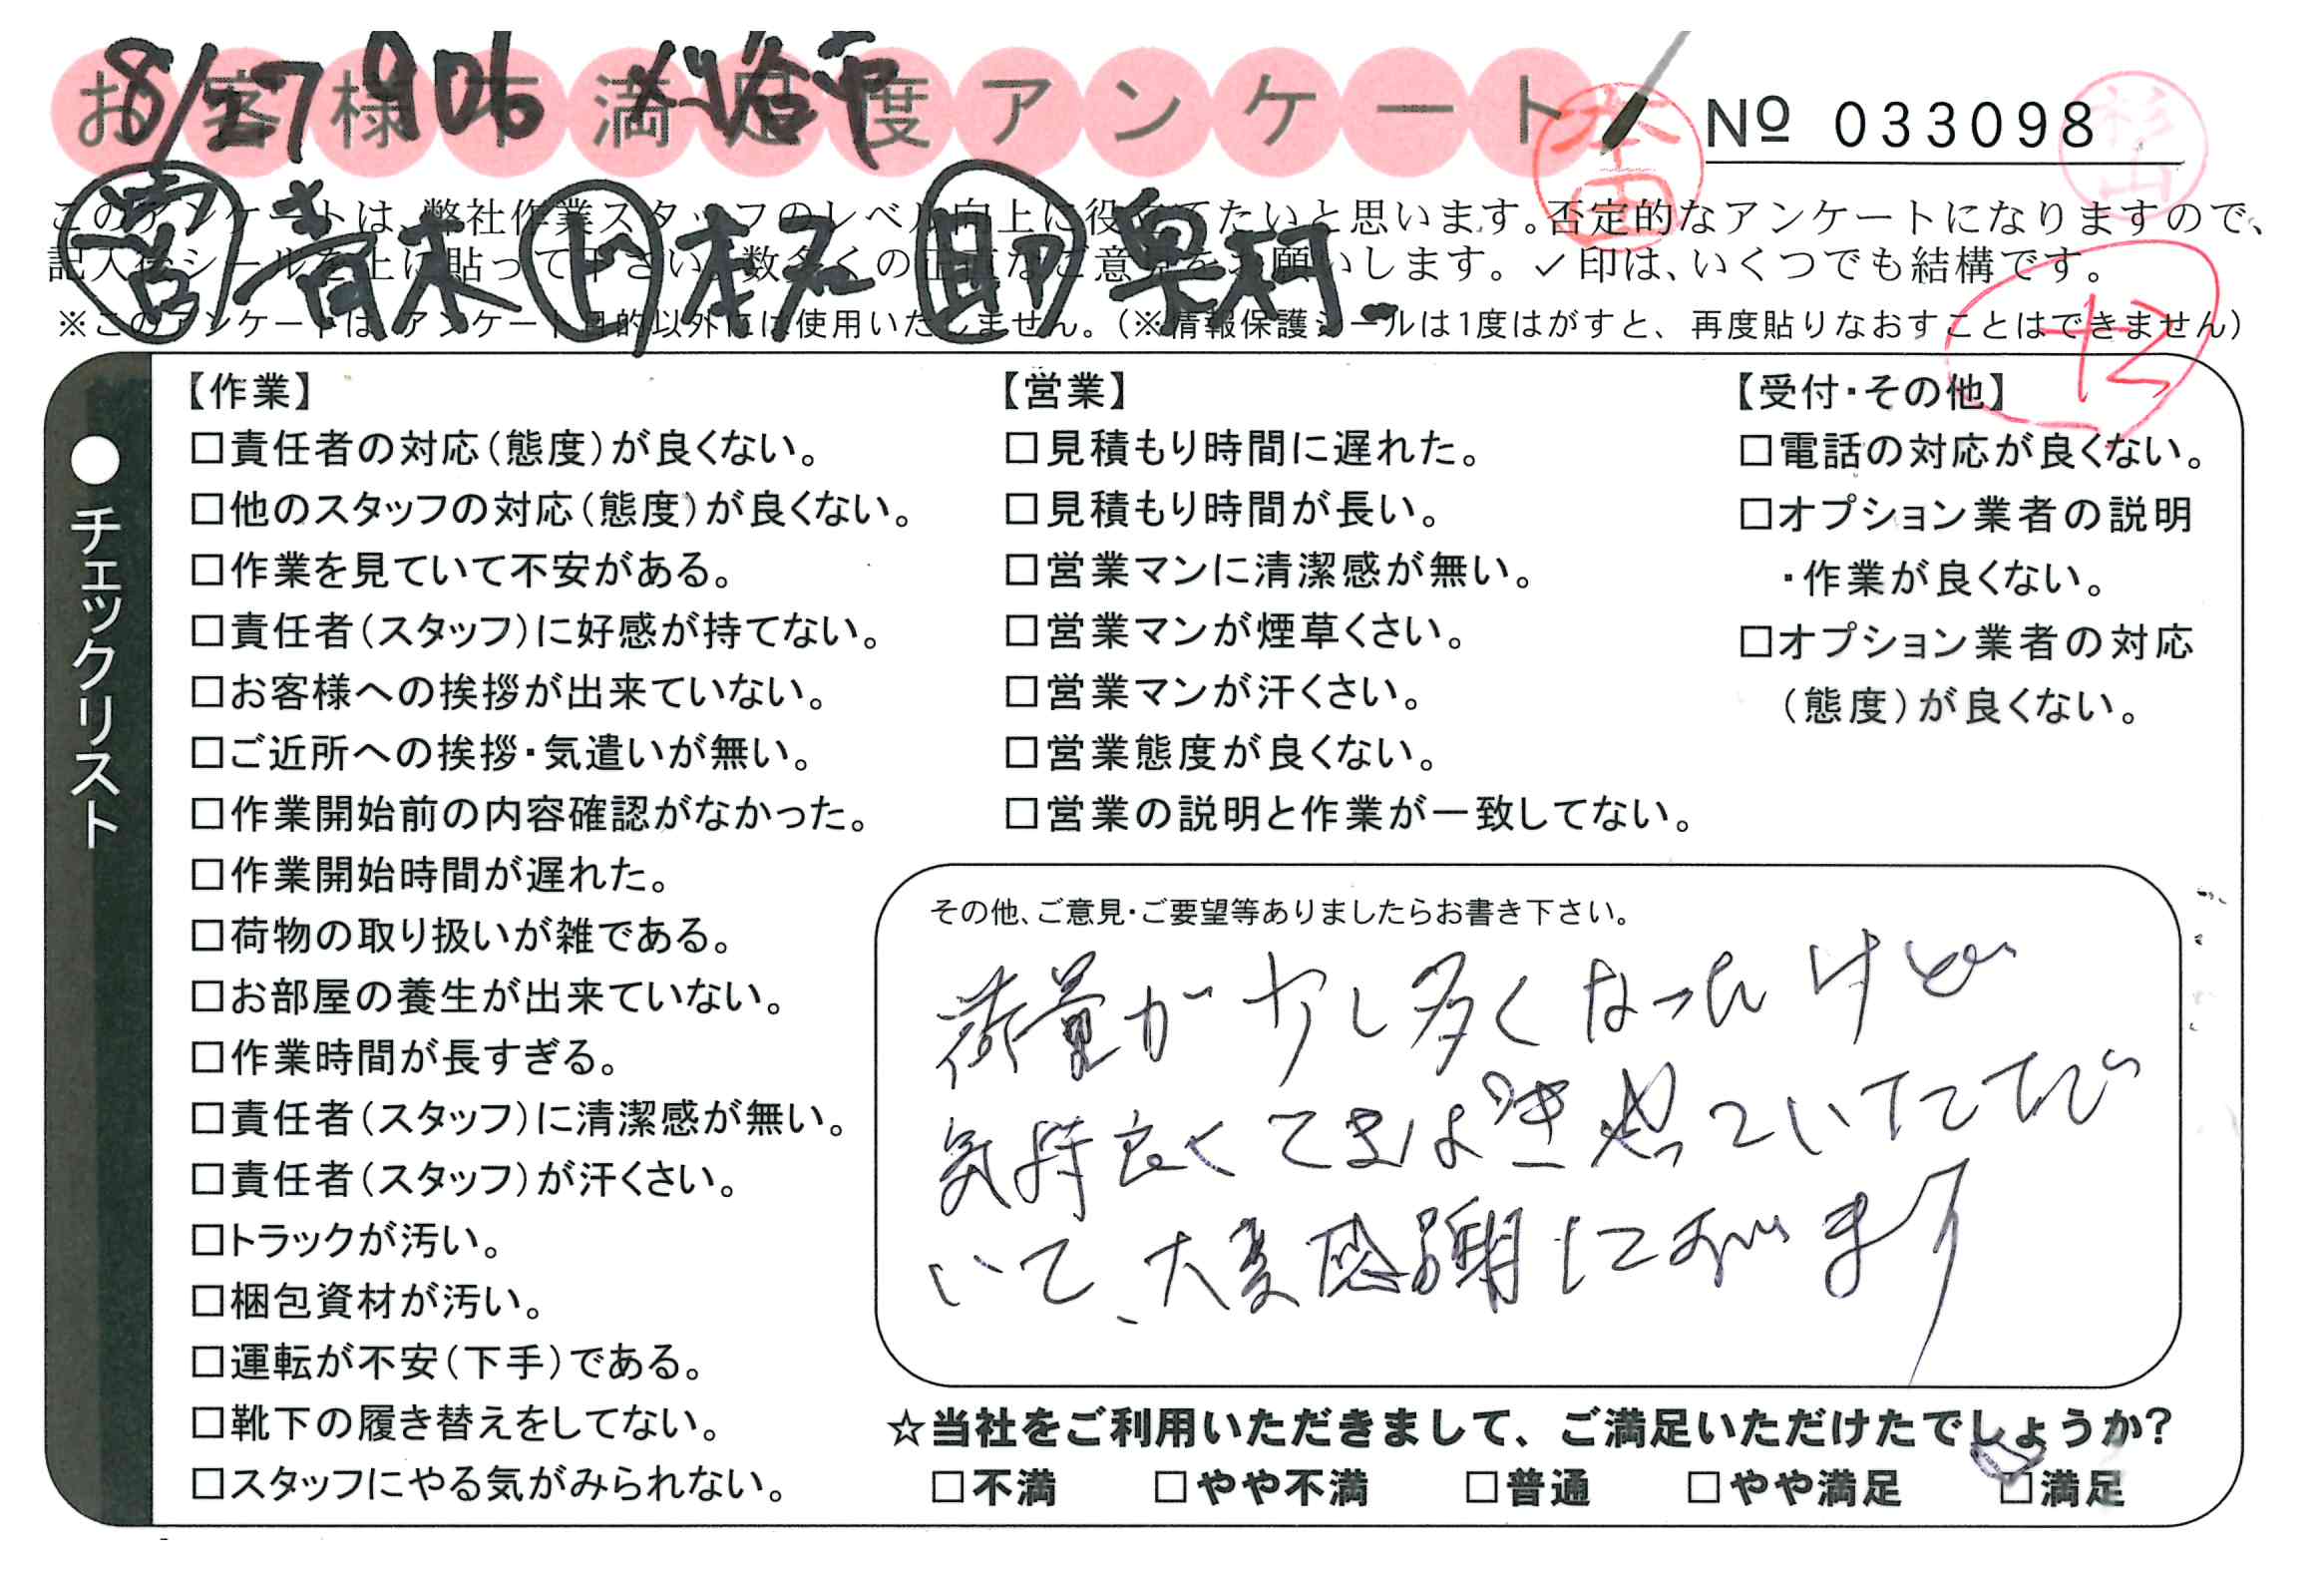 お客様不満足度アンケート
8/27 906
本田
杉山
Nº 033098
このアンケートは、弊社作業スタッフのレベル向上に役立てたいと思います。否定的なアンケートになりますので、
記入後シールを上に貼って下さい。数多くの正直なご意見をお願いします。✓印は、いくつでも結構です。
※このアンケートは、アンケート目的以外には使用いたしません。（※情報保護シールは1度はがすと、再度貼りなおすことはできません）
営 青木 上 本名 即
●チェックリスト
【作業】
□責任者の対応（態度）が良くない。
□他のスタッフの対応（態度）が良くない。
□作業を見ていて不安がある。
□責任者（スタッフ）に好感が持てない。
□お客様への挨拶が出来ていない。
□ご近所への挨拶・気遣いが無い。
□作業開始前の内容確認がなかった。
□作業開始時間が遅れた。
□荷物の取り扱いが雑である。
□お部屋の養生が出来ていない。
□作業時間が長すぎる。
□責任者（スタッフ）に清潔感が無い。
□責任者（スタッフ）が汗くさい。
□トラックが汚い。
□梱包資材が汚い。
□運転が不安（下手）である。
□靴下の履き替えをしてない。
□スタッフにやる気がみられない。
【営業】
□見積もり時間に遅れた。
□見積もり時間が長い。
□営業マンに清潔感が無い。
□営業マンが煙草くさい。
□営業マンが汗くさい。
□営業態度が良くない。
□営業の説明と作業が一致してない。
【受付・その他】
□電話の対応が良くない。
□オプション業者の説明
・作業が良くない。
□オプション業者の対応
（態度）が良くない。
その他、ご意見・ご要望等ありましたらお書き下さい。
荷量が少し多くなったけど
気持良くてきぱき やっていただ
いて、大変感謝しております
☆当社をご利用いただきまして、ご満足いただけたでしょうか？
□不満 □やや不満 □普通 □やや満足 □満足